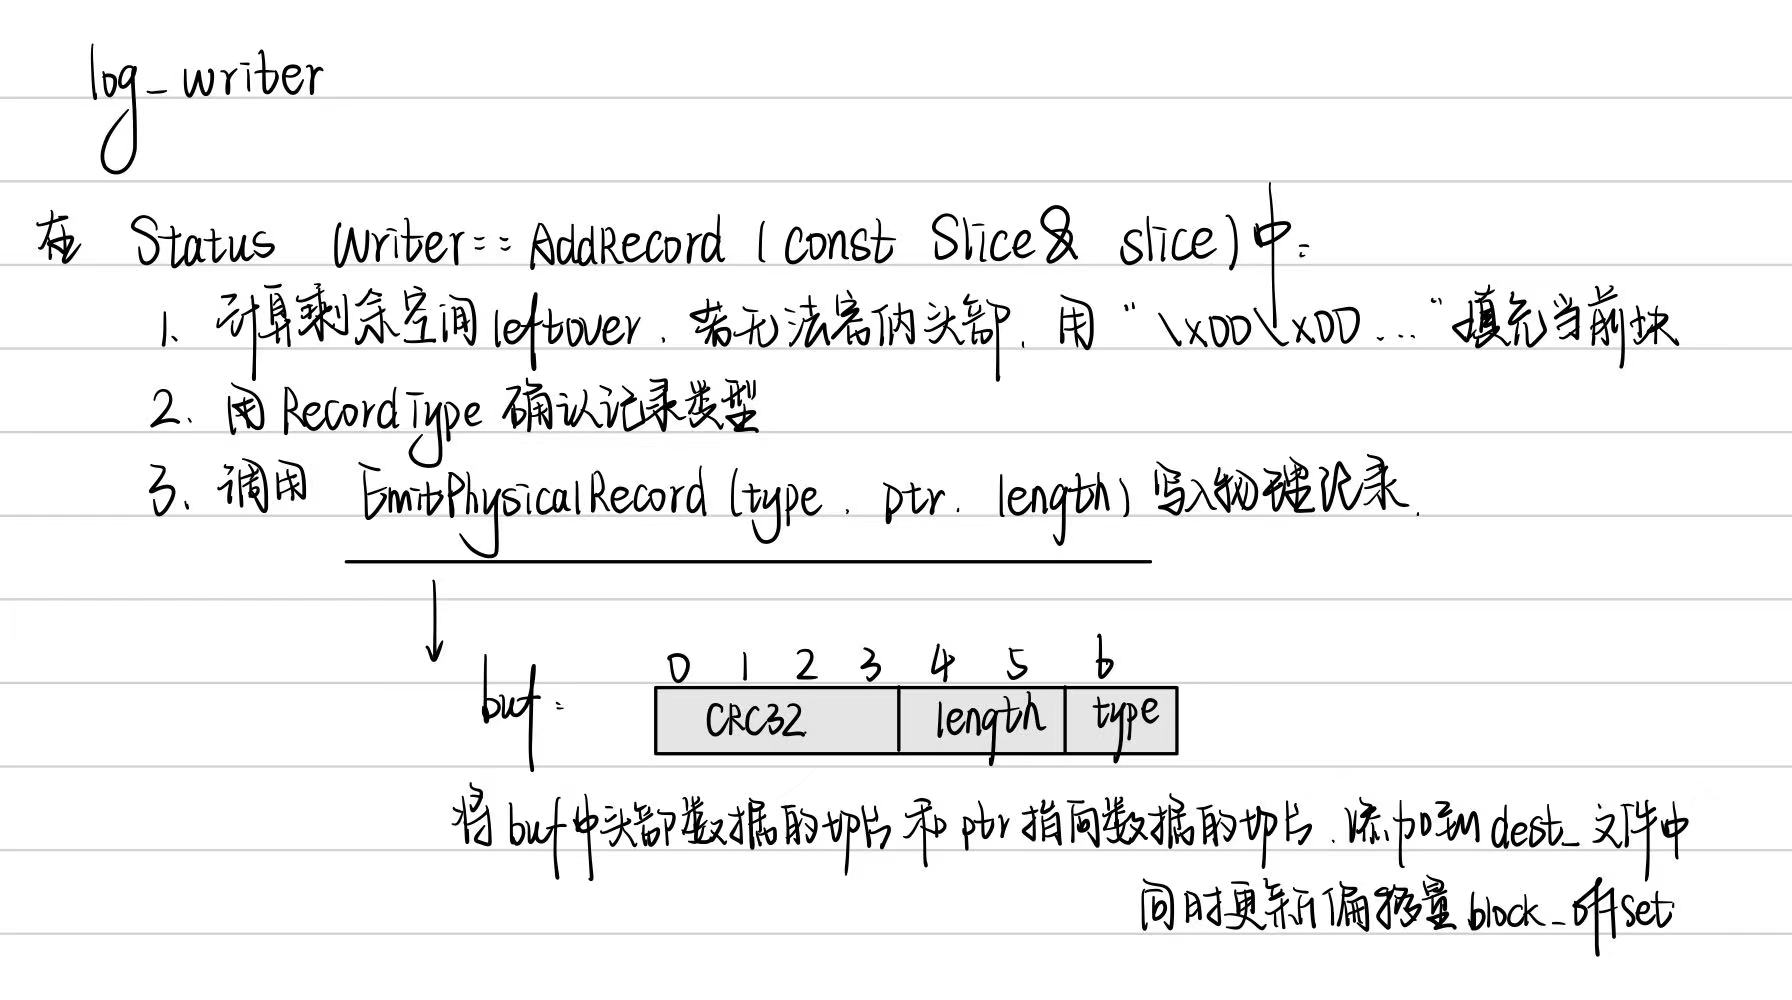 log_writer
在 Status Writer::AddRecord (const Slice& slice)中:
1、计算剩余空间leftover,若无法容纳头部,用“\x00\x00...”填充当前块
2、用RecordType 确认记录类型
3、调用 EmitPhysicalRecord(type, ptr, length) 写入物理记录.
0 1 2 3 4 5 6
buf: CRC32 length type
将buf中头部数据的切片和ptr指向数据的切片,添加到dest_文件中
同时更新偏移量block_offset